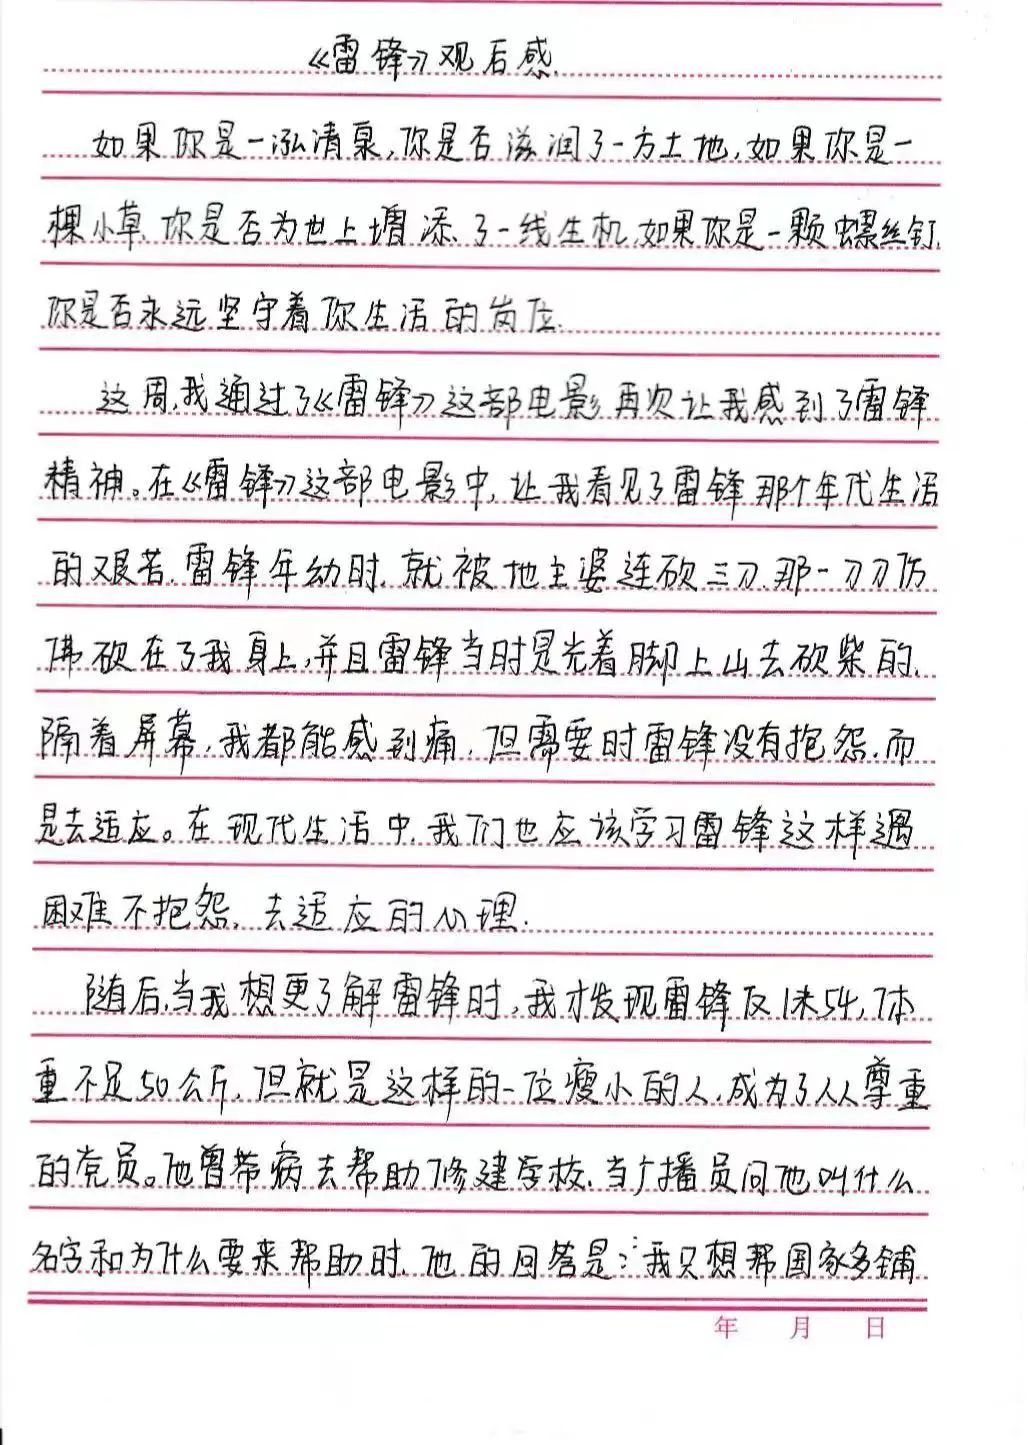 《雷锋》观后感.
如果你是一泓清泉,你是否滋润了一方土地,如果你是一
棵小草,你是否为世上增添了一线生机,如果你是一颗螺丝钉,
你是否永远坚守着你生活的岗位.
这周,我通过了《雷锋》这部电影再次让我感到了雷锋
精神。在《雷锋》这部电影中,让我看见了雷锋那个年代生活
的艰苦.雷锋年幼时,就被地主婆连砍三刀.那一刀刀仿
佛砍在了我身上,并且雷锋当时是光着脚上山去砍柴的.
隔着屏幕,我都能感到痛,但需要时雷锋没有抱怨.而
是去适应。在现代生活中,我们也应该学习雷锋这样遇
困难不抱怨,去适应的心理.
随后,当我想更了解雷锋时,我才发现雷锋仅1米54,体
重不足50公斤,但就是这样的一位瘦小的人,成为了人人尊重
的党员。他曾带病去帮助修建学校,当广播员问他叫什么
名字和为什么要来帮助时,他的回答是:"我只想帮国家多铺
年 月 日